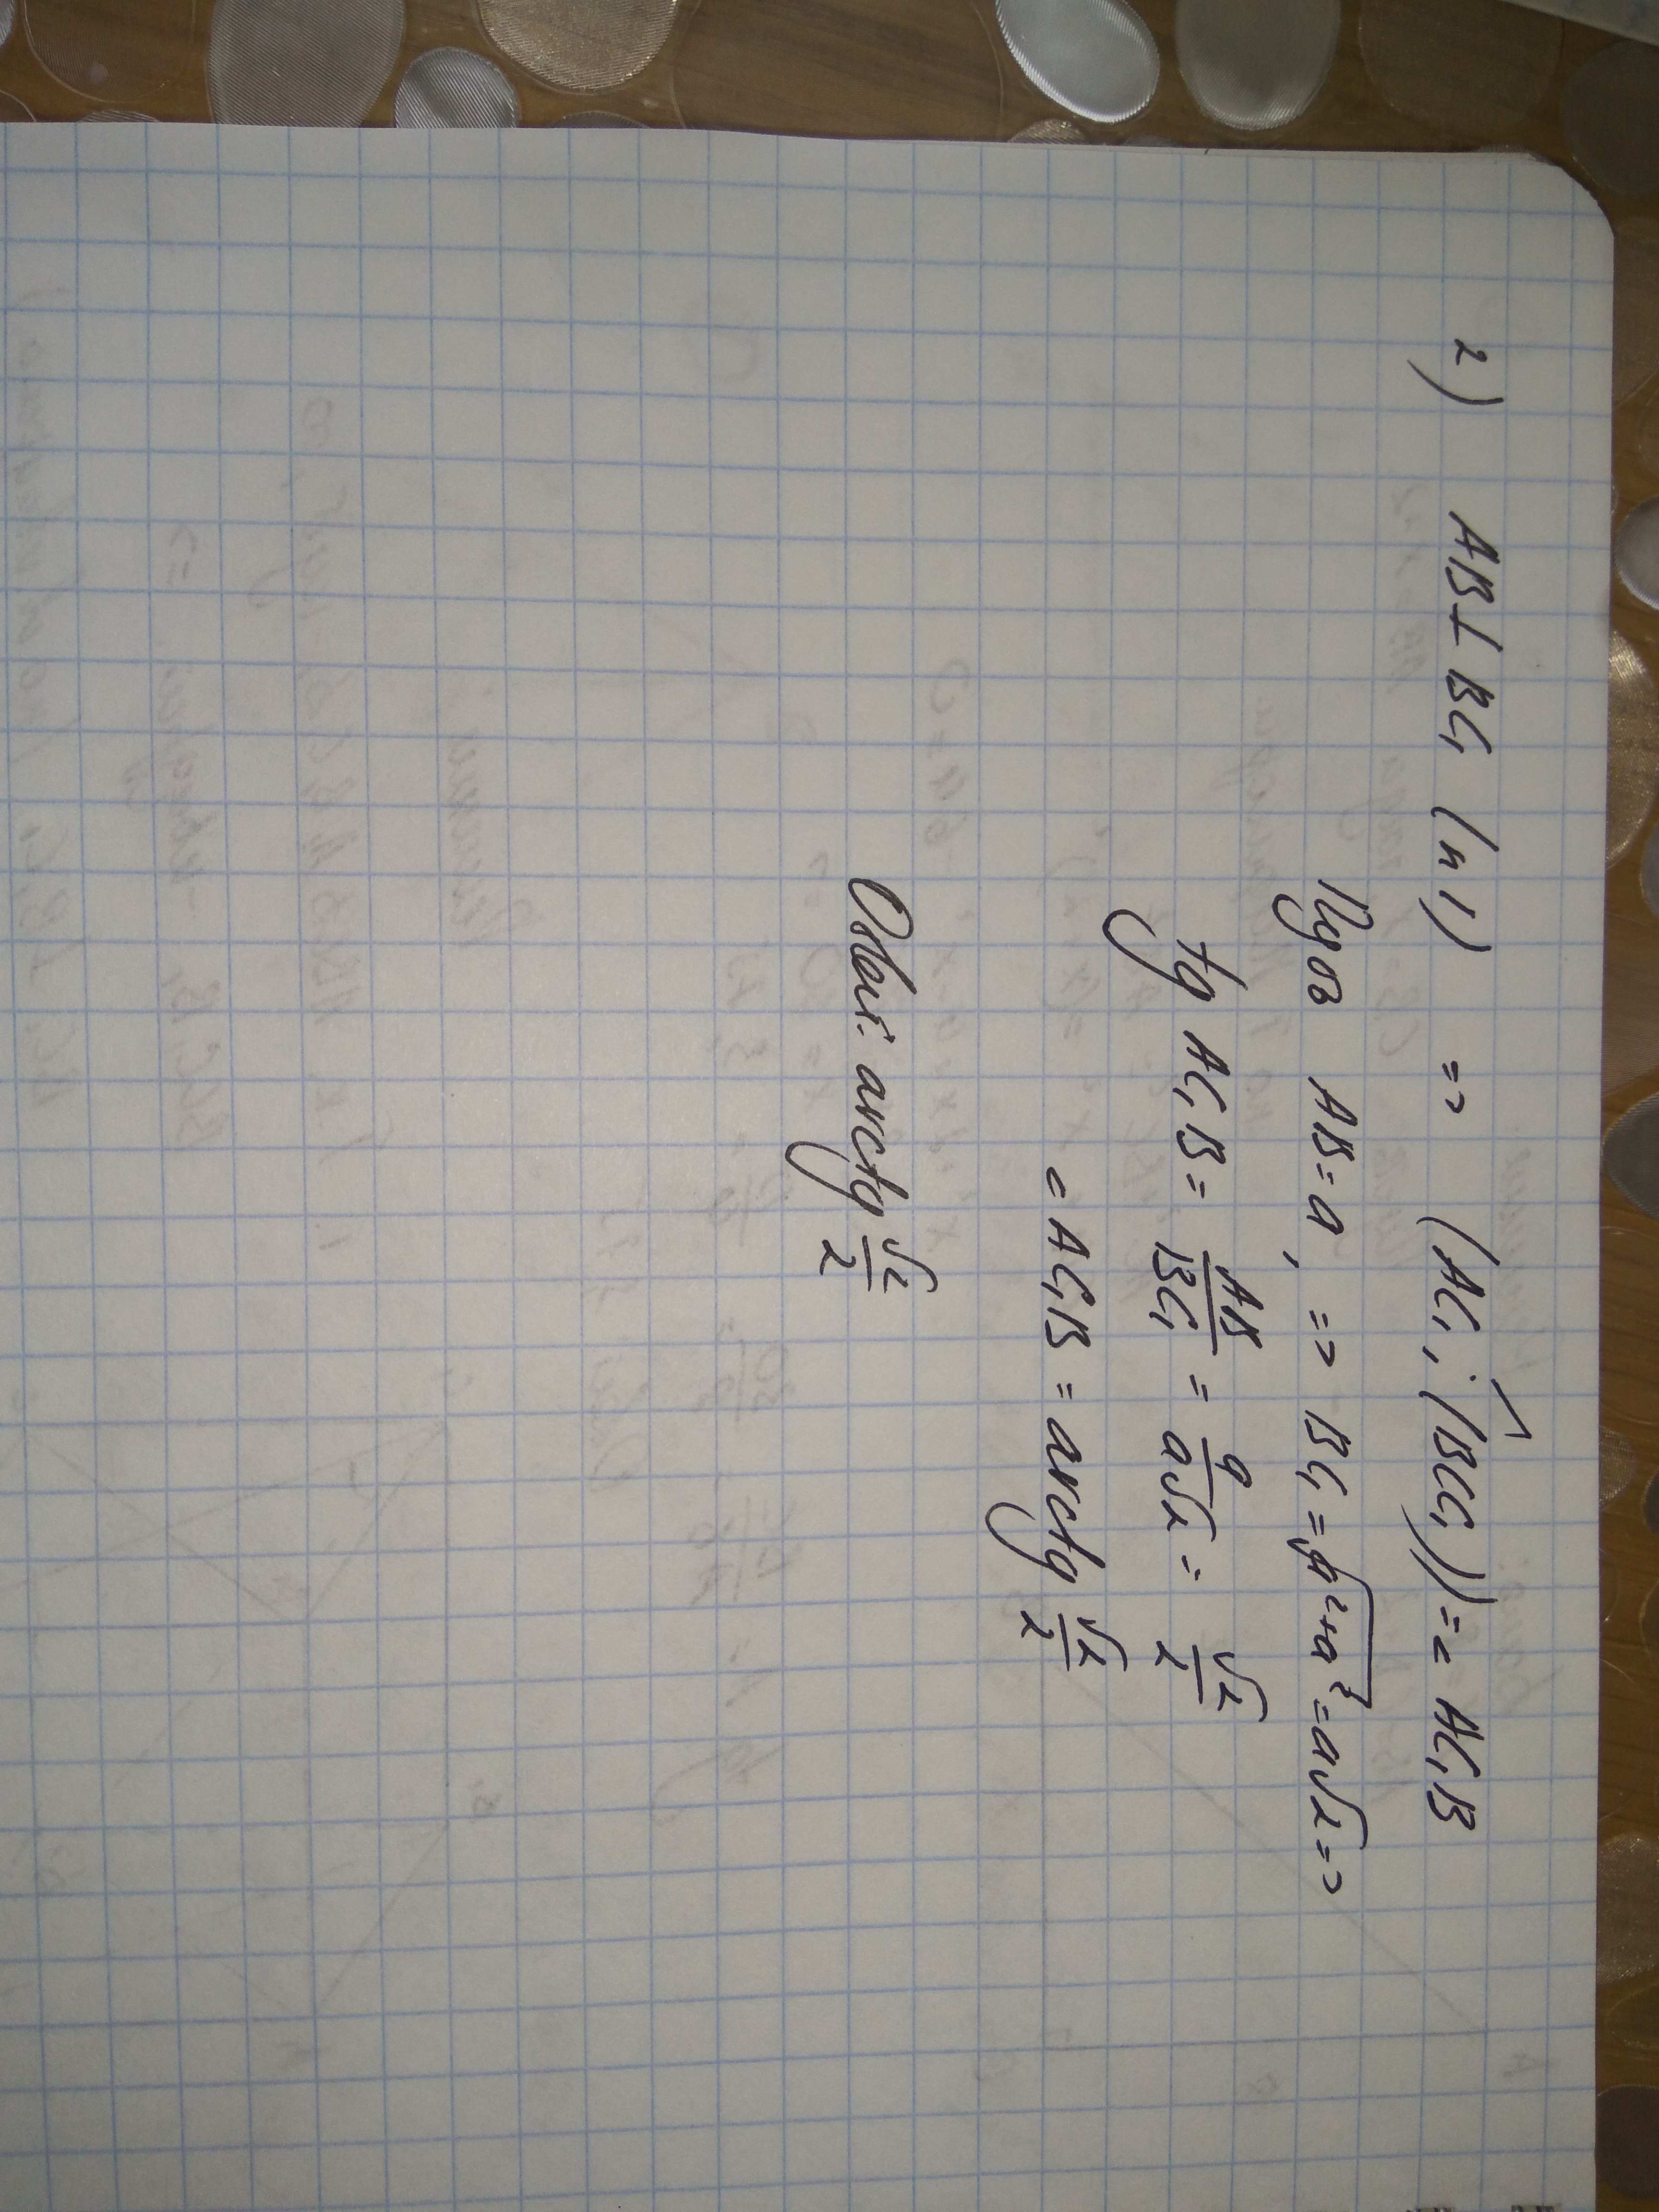 2) AB⊥BC₁ (п1) => (AC₁; (BCC₁)) = ∠AC₁B
Пусть AB = a, => BC₁ = √a²+a² = a√2 =>
tg AC₁B = AB/BC₁ = a/a√2 = √2/2
∠AC₁B = arctg √2/2
Ответ: arctg √2/2